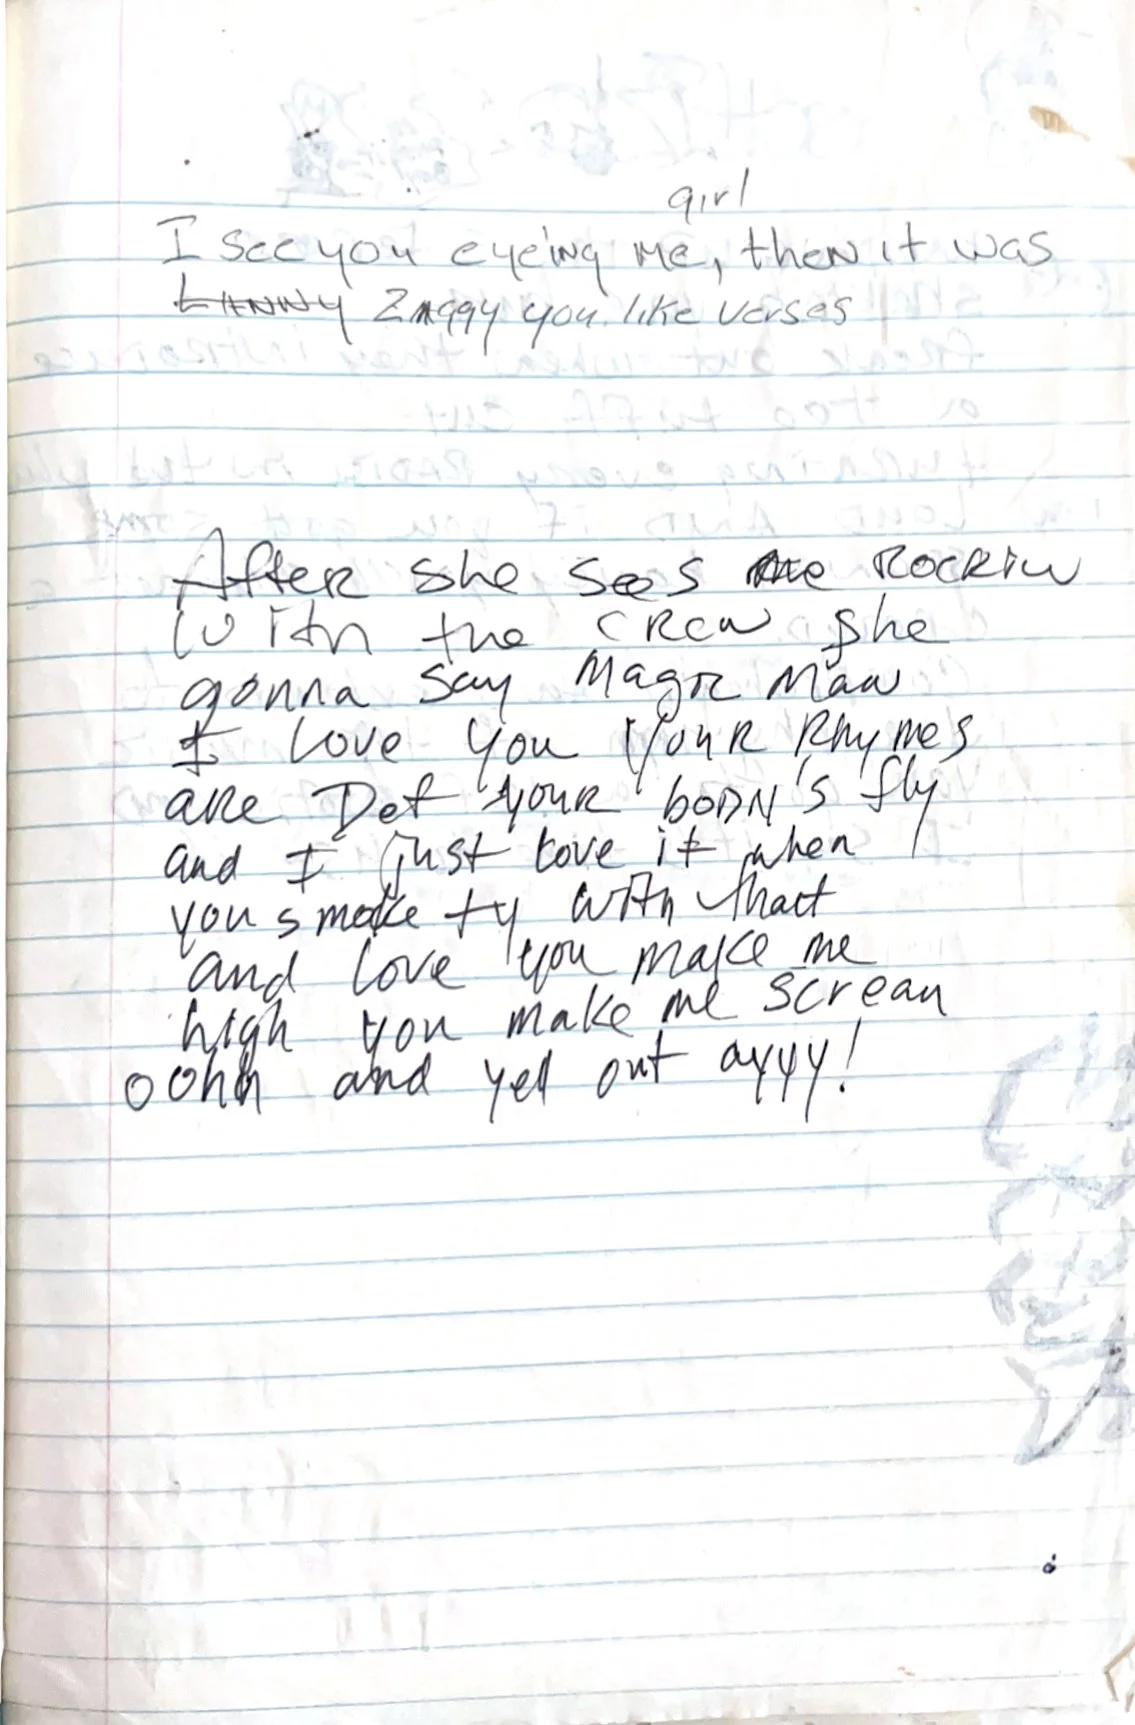 girl
I see you eye'ing me, then it was
Ziggy you like verses
After she sees me Rockin
with the crew she
gonna say Magic Man
I love you your Rhymes
are Def your body's fly
and I just love it when
you smoke ty with that
and love you make me
high you make me scream
oohh and yell out ayyy!